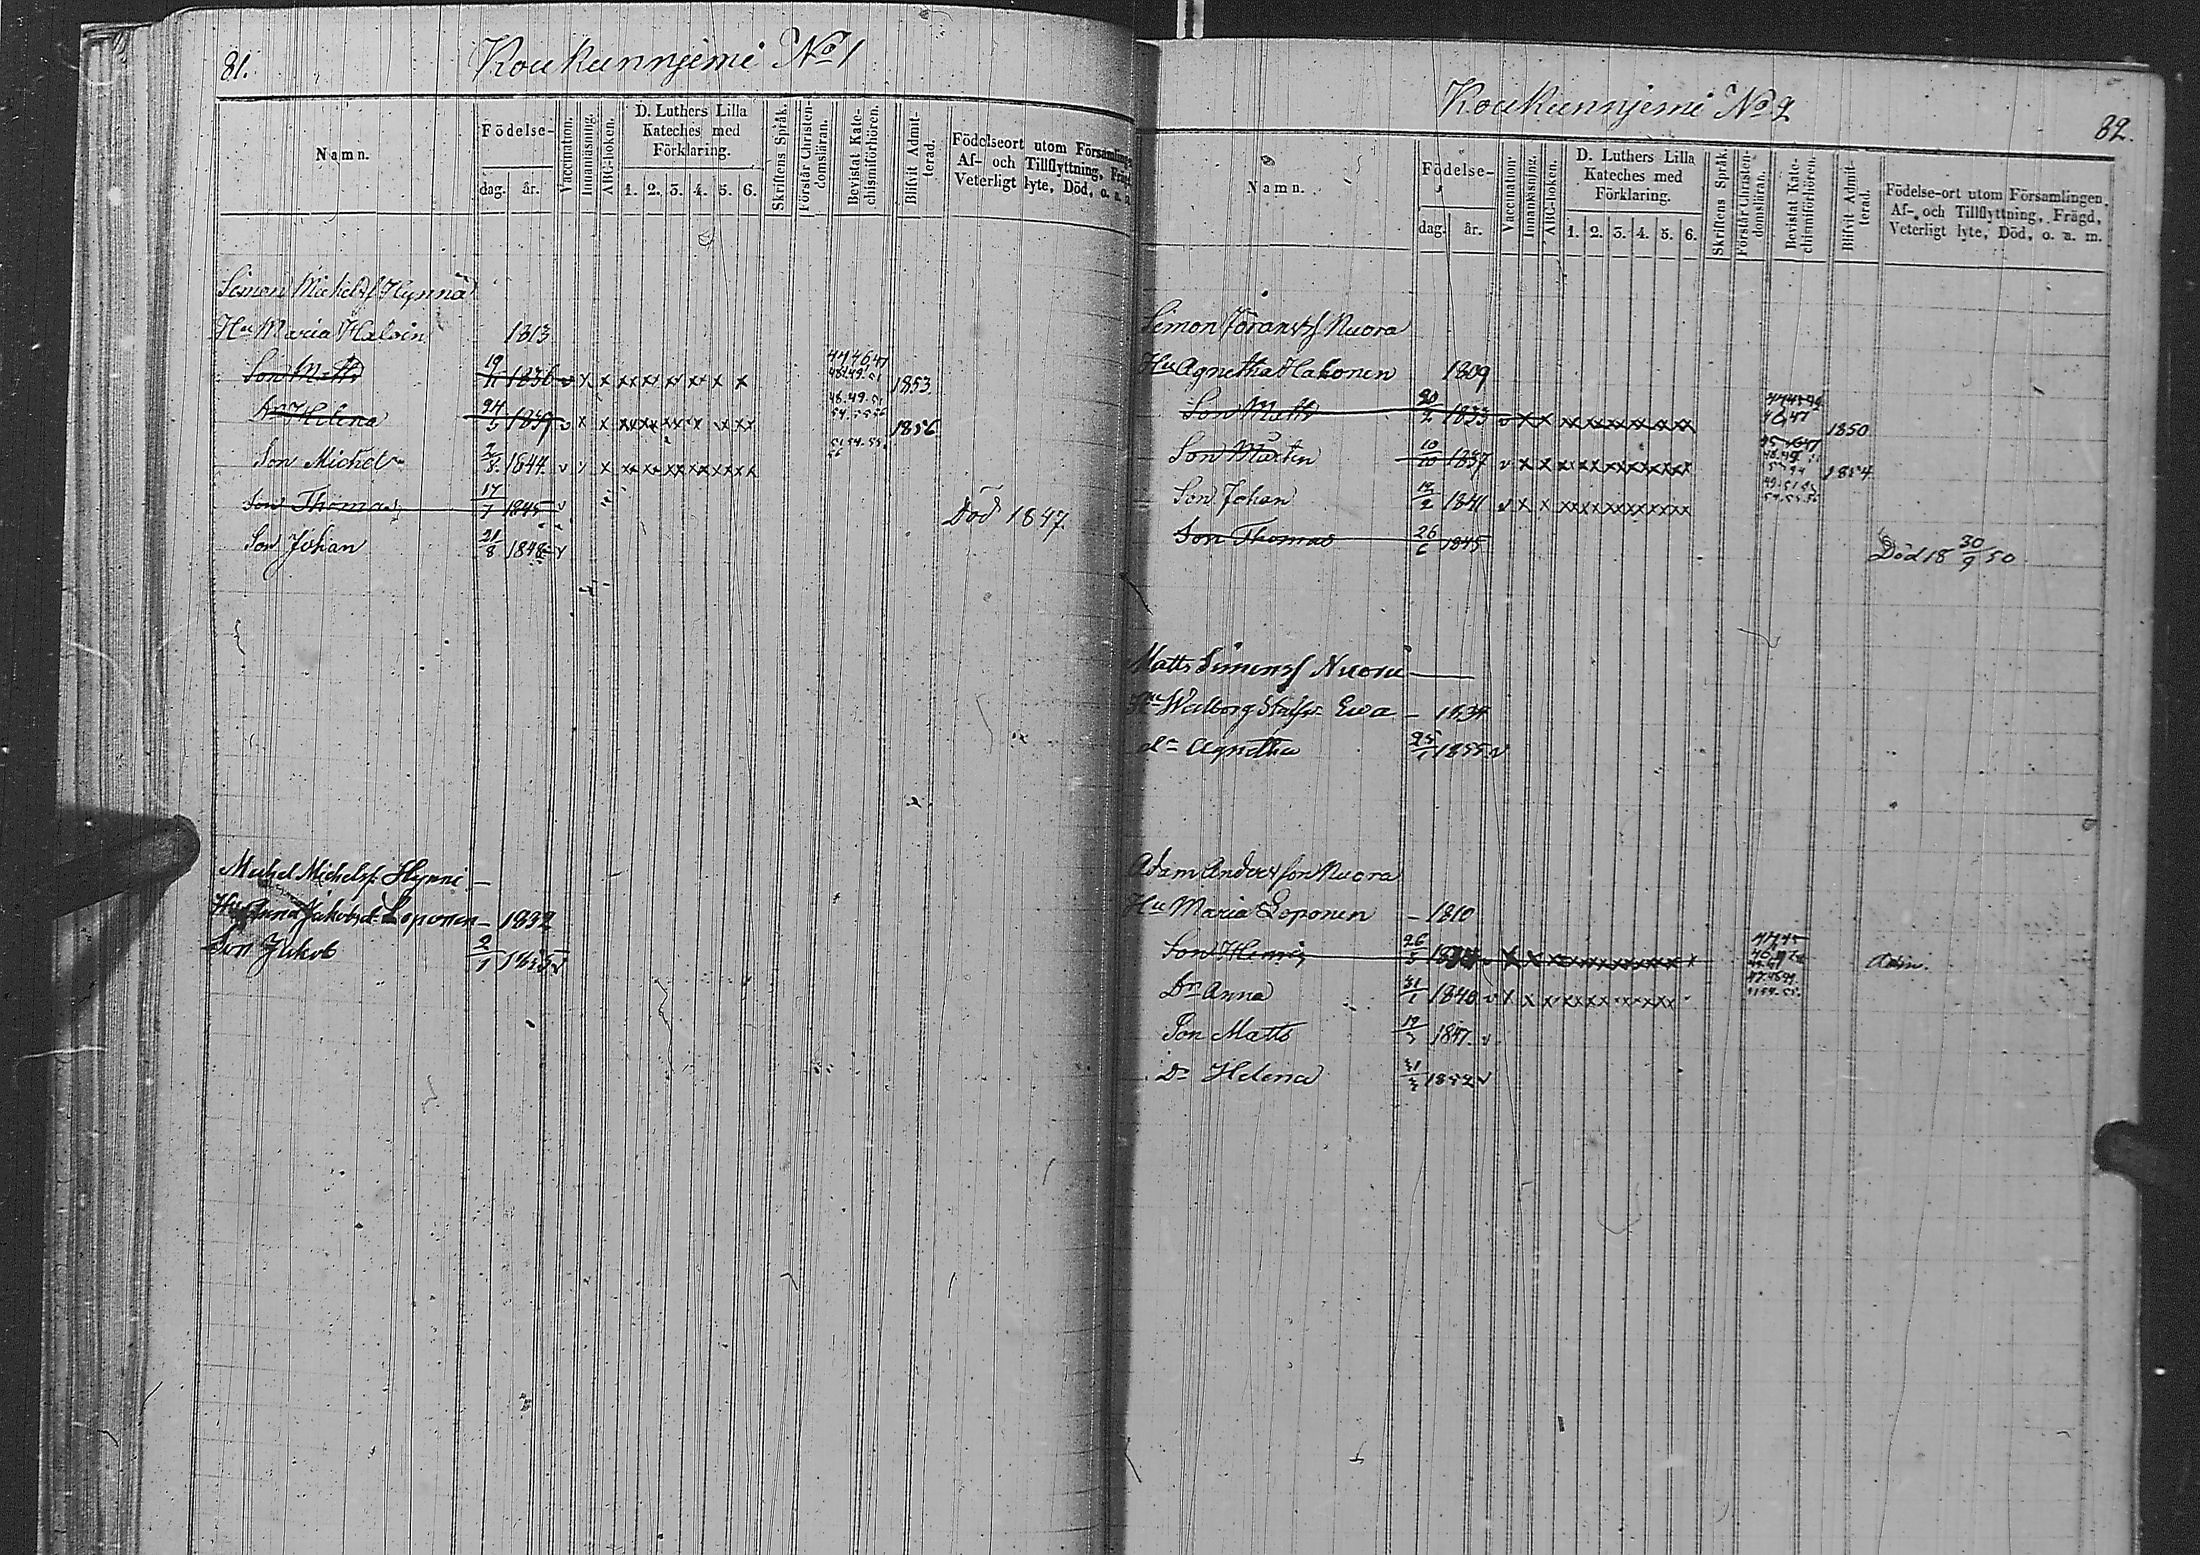 81.
Koukunnjemi No 1
Namn.
Födelse-
dag.
år.
Vaccination.
Innanläsning.
ABC-boken.
D. Luthers Lilla
Kateches med
Förklaring.
1. 2. 3. 4. 5. 6.
Skriftens Språk.
Förstår Christen-
domsläran.
Bevistat Kate-
chismiförhören.
Blifvit Admit-
terad.
Födelseort utom Församlingen
Af- och Tillflyttning, Frägd,
Veterligt lyte, Död, o. a. m.
Simon Michelsf Hynnä
Hu Maria Haloin 1813
Son Matts 1836 v x x xx xx xx xx x x 1853.
Dr Helena 24 1839 v x x 48.49.51 1856
Son Michel 1844 v x x xx xx xx xx xx xx
Son Thomas 17/7 1845 v Död 1847.
Son Johan 21/8 1848 v
Michel Michelsf. Hynni —
Hu Anna Jakobsd. Loponen — 1832
Son Jakob 2/1 1855 v
Koukunnjemi No 2
82.
Namn.
Födelse-
dag.
år.
Vaccination.
Innanläsning.
ABC-boken.
D. Luthers Lilla
Kateches med
Förklaring.
1. 2. 3. 4. 5. 6.
Skriftens Språk.
Förstår Christen-
domsläran.
Bevistat Kate-
chismiförhören.
Blifvit Admit-
terad.
Födelse-ort utom Församlingen,
Af- och Tillflyttning, Frägd,
Veterligt lyte, Död, o. a. m.
Simon Göransf Nuora
Hu Agnetha Hakonen 1809
Son Matts 20/2 1833 v x x 46,47 1850
Son Mårten 10/10 1837 v x x 1854
Son Johan 1841 v x x
Son Thomas 26/6 1845 Död 18 30/9 50
Matts Simonsf Nuora —
Hu Walborg Ewa — 1834
dr Agnetha 25/1 1855 v
Adam Andersson Nuora
Hu Maria Loponen — 1810
Son Henric 26/5 v x x Adm.
Dr Anna 31/1 1840 v x x x
Son Matts 1847 v
Dr Helena 31/3 1852 v